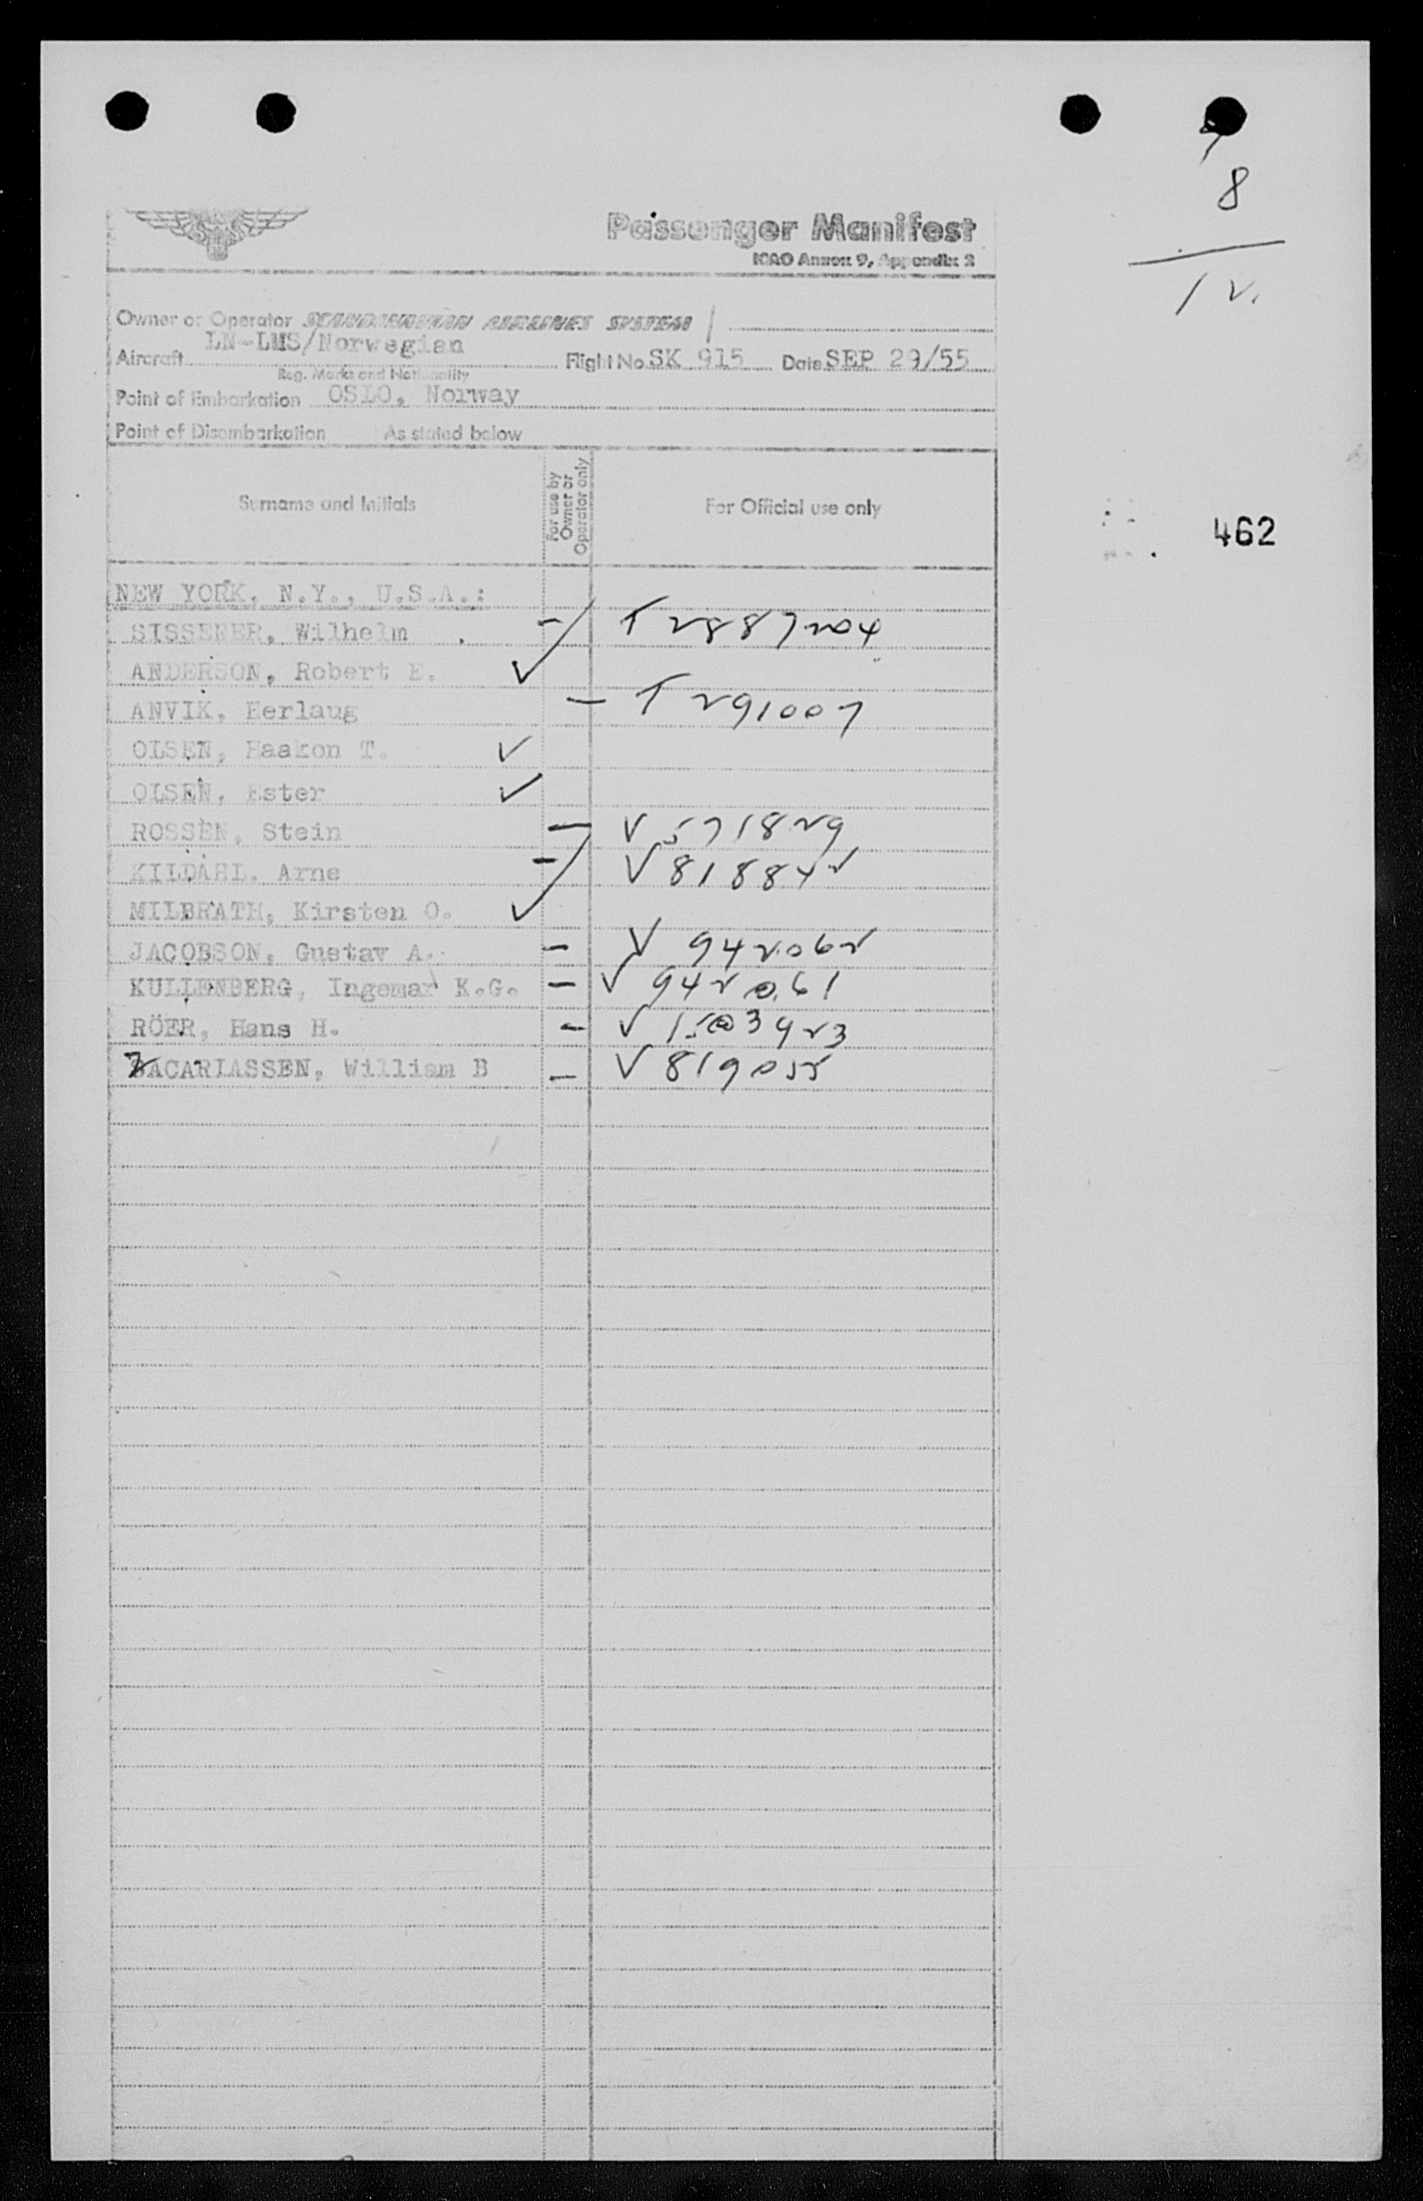 8
12
Passenger Manifest
ICAO Annex 9, Appendix 2
Owner or Operator SCANDINAVIAN AIRLINES SYSTEM
LN-LMS/Norwegian
Aircraft Flight No. SK 915 Date SEP 29/55
Reg. Marks and Nationality
Point of Embarkation OSLO, Norway
Point of Disembarkation As stated below
Surname and Initials For use by Owner or Operator only For Official use only
462
NEW YORK, N.Y., U.S.A.:
SISSENER, Wilhelm - T 2887204
ANDERSON, Robert E. ✓
ANVIK, Herlaug - T 291007
OLSEN, Haakon T. ✓
OLSEN, Ester ✓
ROSSEN, Stein - V 571829
KILDAHL, Arne - V 818842
MILBRATH, Kirsten O. ✓
JACOBSON, Gustav A. - V 942062
KULLENBERG, Ingemar K.G. - V 942061
RÖER, Hans H. - V 1503923
ZACARIASSEN, William B - V 819055